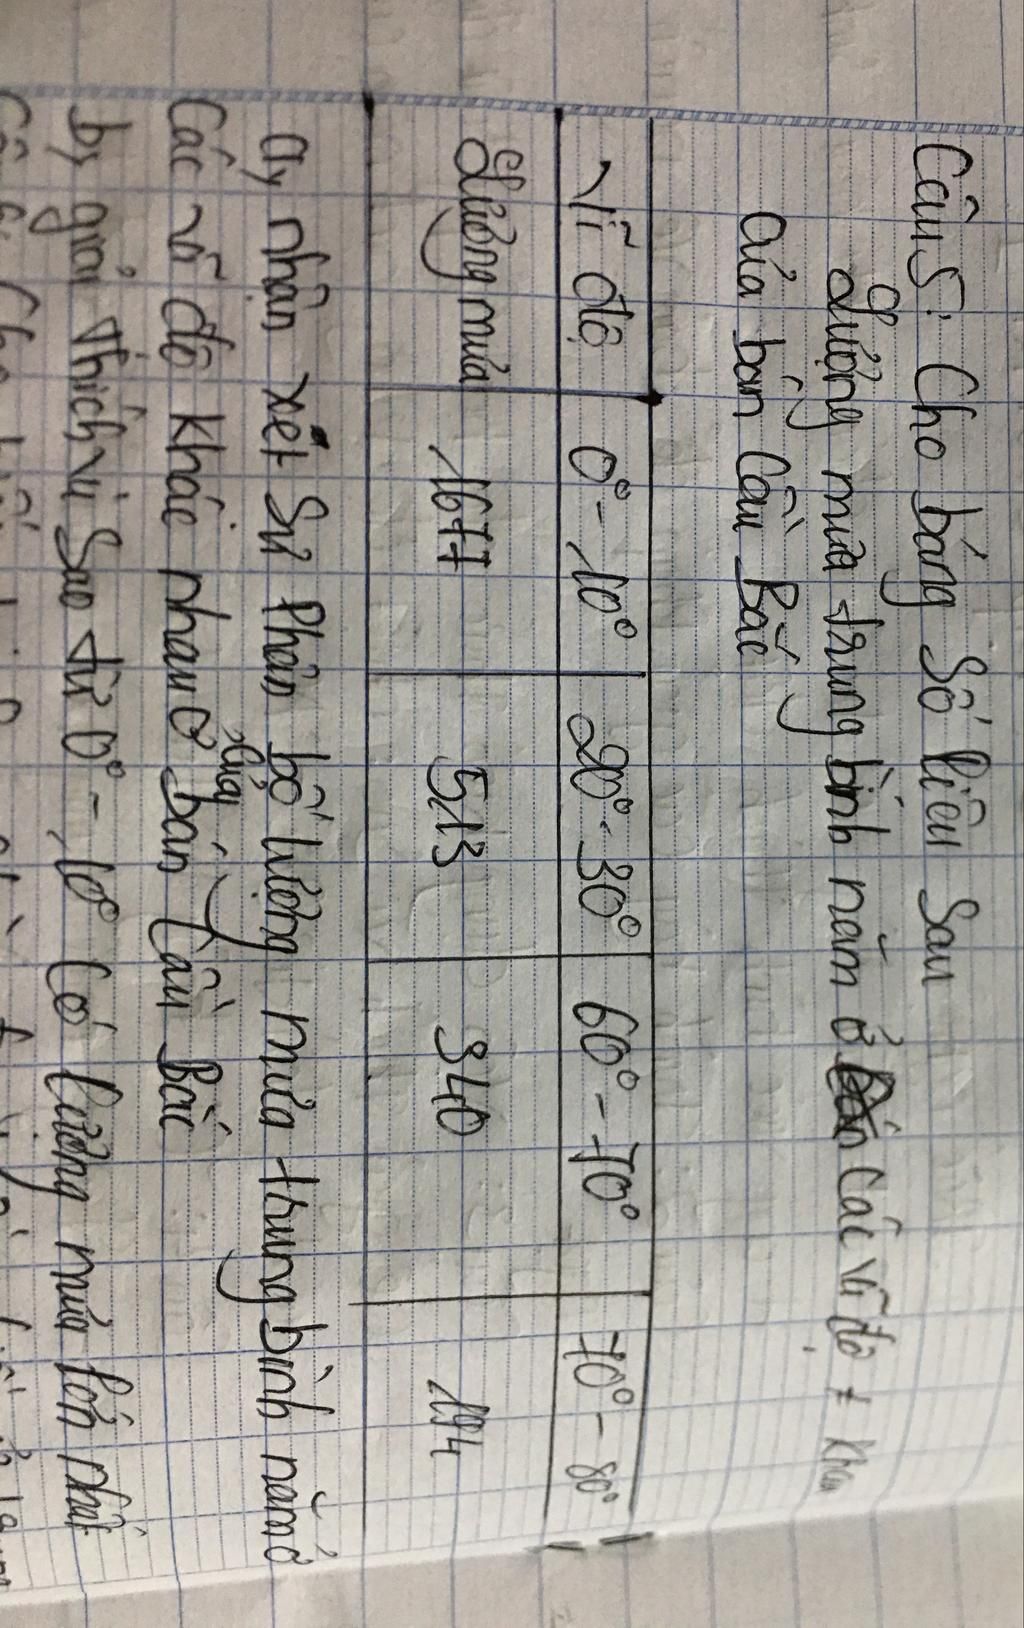 Câu 5: Cho bảng Số liệu Sau
Lượng mưa trung bình năm ở các vĩ độ ≠ nhau
của bán cầu Bắc
Vĩ độ 0° - 10° 20° - 30° 60° - 70° 70° - 80°
Lượng mưa 1677 513 340 194
a, nhận xét Sự Phân bố lượng mưa trung bình năm ở
Các vĩ độ khác nhau ở bán Cầu Bắc
của
b, giải thích vì Sao từ 0° - 10° Có lượng mưa lớn nhất